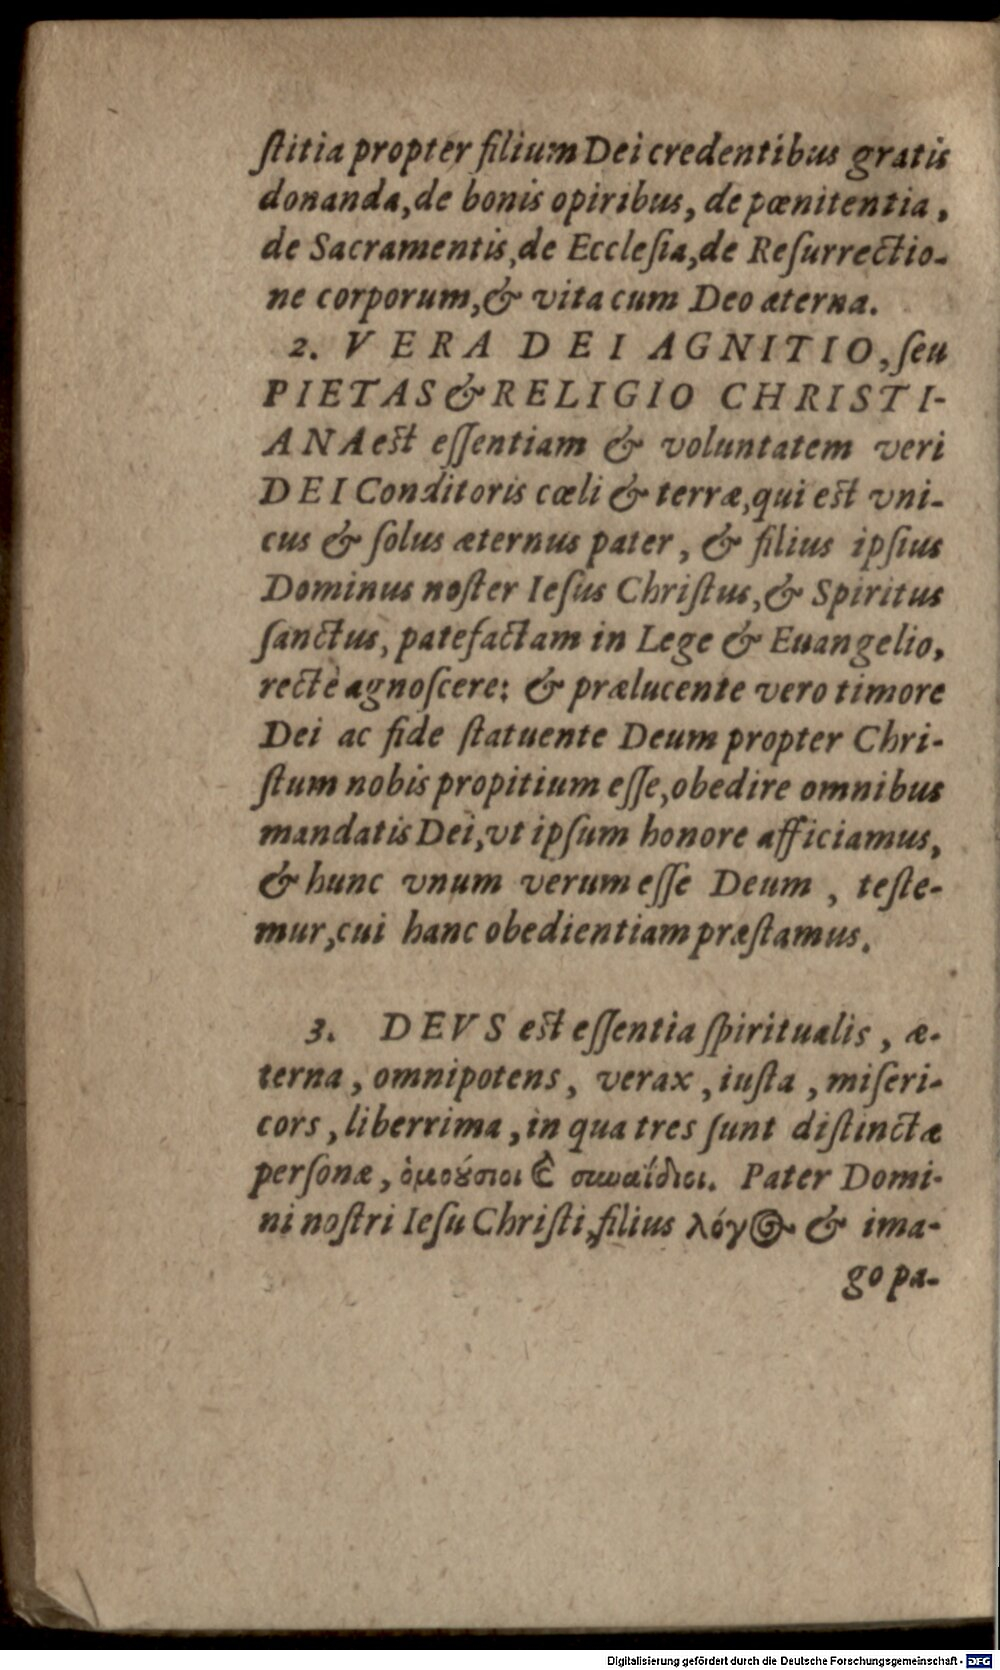 ſtitia propter filium Dei credentibus gratis
donanda, de bonis opiribus, de pœnitentia,
de Sacramentis, de Eccleſia, de Reſurrectio-
ne corporum, & vita cum Deo æterna.
2. VERA DEI AGNITIO, ſeu
PIETAS & RELIGIO CHRISTI-
ANA est eſſentiam & voluntatem veri
DEI Conditoris cœli & terræ, qui est vni-
cus & ſolus æternus pater, & filius ipſius
Dominus noſter Ieſus Chriſtus, & Spiritus
ſanctus, patefactam in Lege & Euangelio,
rectè agnoſcere: & prælucente vero timore
Dei ac fide ſtatuente Deum propter Chri-
ſtum nobis propitium eſſe, obedire omnibus
mandatis Dei, vt ipſum honore afficiamus,
& hunc vnum verum eſſe Deum, teſte-
mur, cui hanc obedientiam præſtamus.
3. DEVS est eſſentia ſpiritualis, æ-
terna, omnipotens, verax, iuſta, miſeri-
cors, liberrima, in qua tres ſunt diſtinctæ
perſonæ, ὁμοούσιοι ϗ συναΐδιοι. Pater Domi-
ni noſtri Ieſu Chriſti, filius λόγος & ima-
go pa-
Digitalisierung gefördert durch die Deutsche Forschungsgemeinschaft - DFG